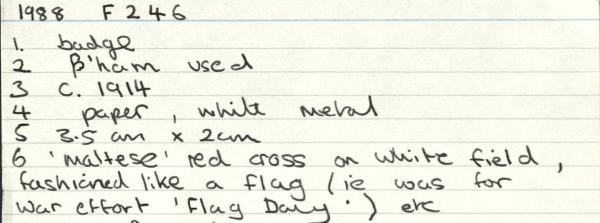 1988 F 246
1. badge
2 B'ham used
3 c. 1914
4 paper, white metal
5 3.5 cm x 2cm
6 'maltese' red cross on white field,
fashioned like a flag (ie was for
war effort 'Flag Day') etc